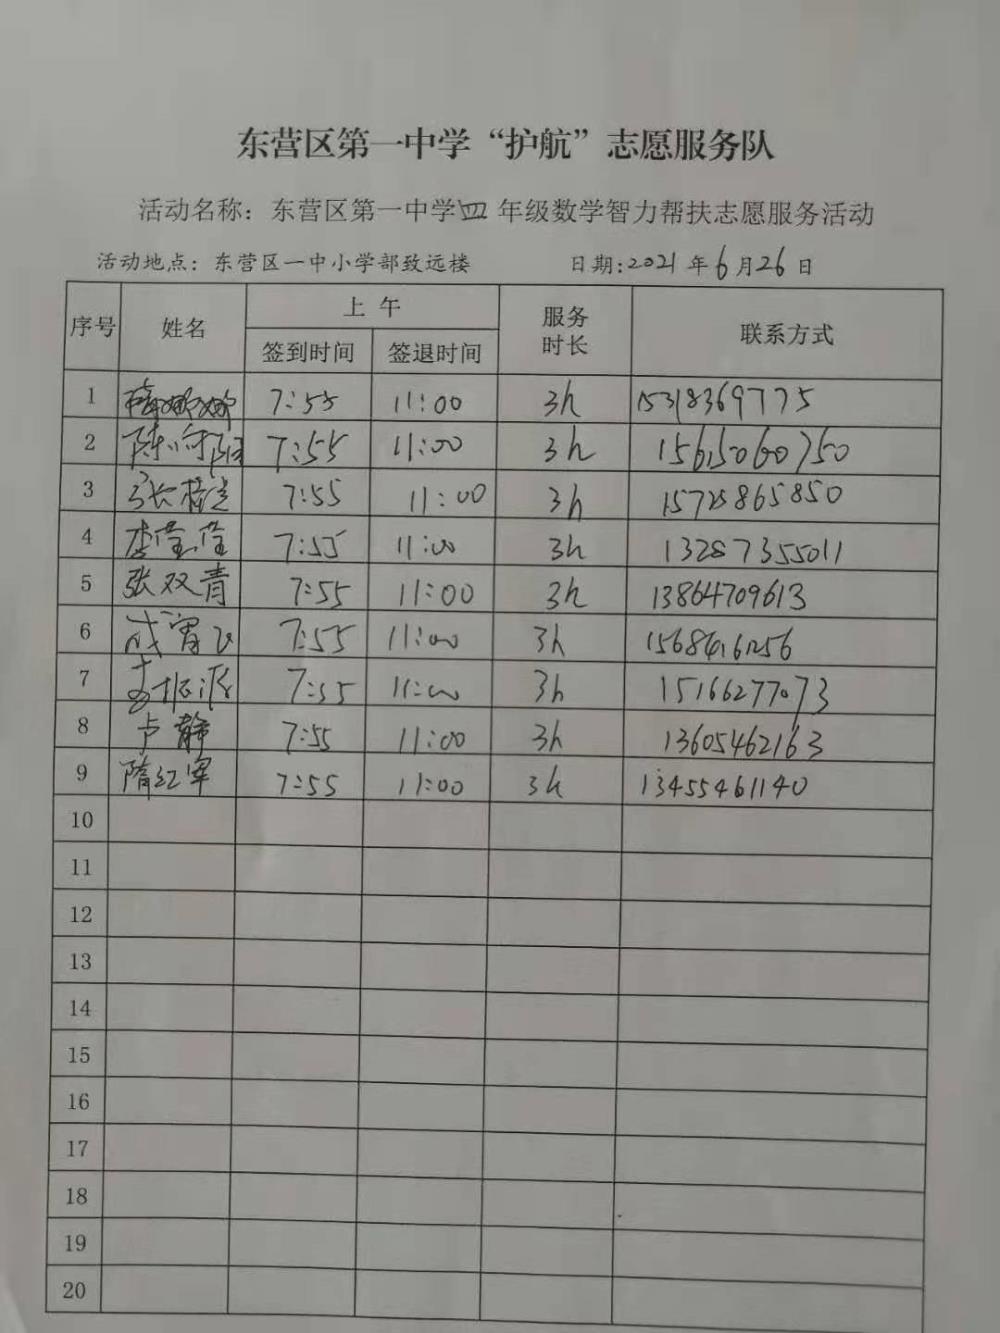 东营区第一中学“护航”志愿服务队
活动名称：东营区第一中学四年级数学智力帮扶志愿服务活动
活动地点：东营区一中小学部致远楼 日期:2021年6月26日
序号 姓名 上午 服务时长 联系方式
签到时间 签退时间
1 7:55 11:00 3h 15318369775
2 陈向阳 7:55 11:00 3h 15615060750
3 7:55 11:00 3h 15725865850
4 李莹莹 7:55 11:00 3h 13287355011
5 张双青 7:55 11:00 3h 13864709613
6 7:55 11:00 3h
7 7:55 11:00 3h 15166277073
8 卢静 7:55 11:00 3h 13605462163
9 隋红军 7:55 11:00 3h 13455461140
10
11
12
13
14
15
16
17
18
19
20